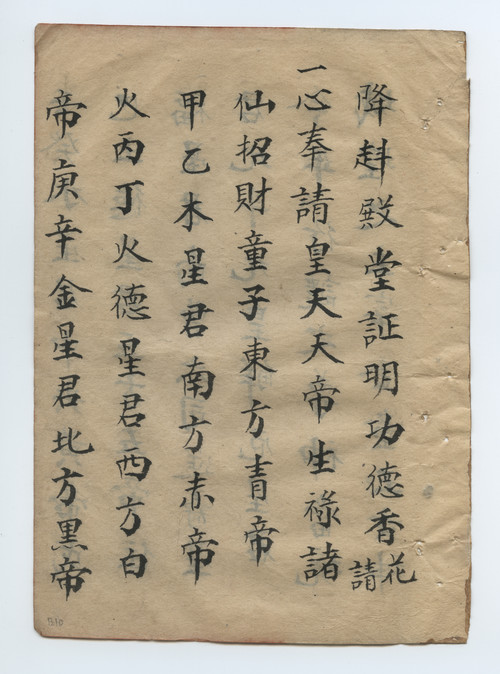 降赴殿堂証明功德香花請
一心奉請皇天天帝生祿諸
仙招財童子東方青帝
甲乙木星君南方赤帝
火丙丁火德星君西方白
帝庚辛金星君北方黑帝